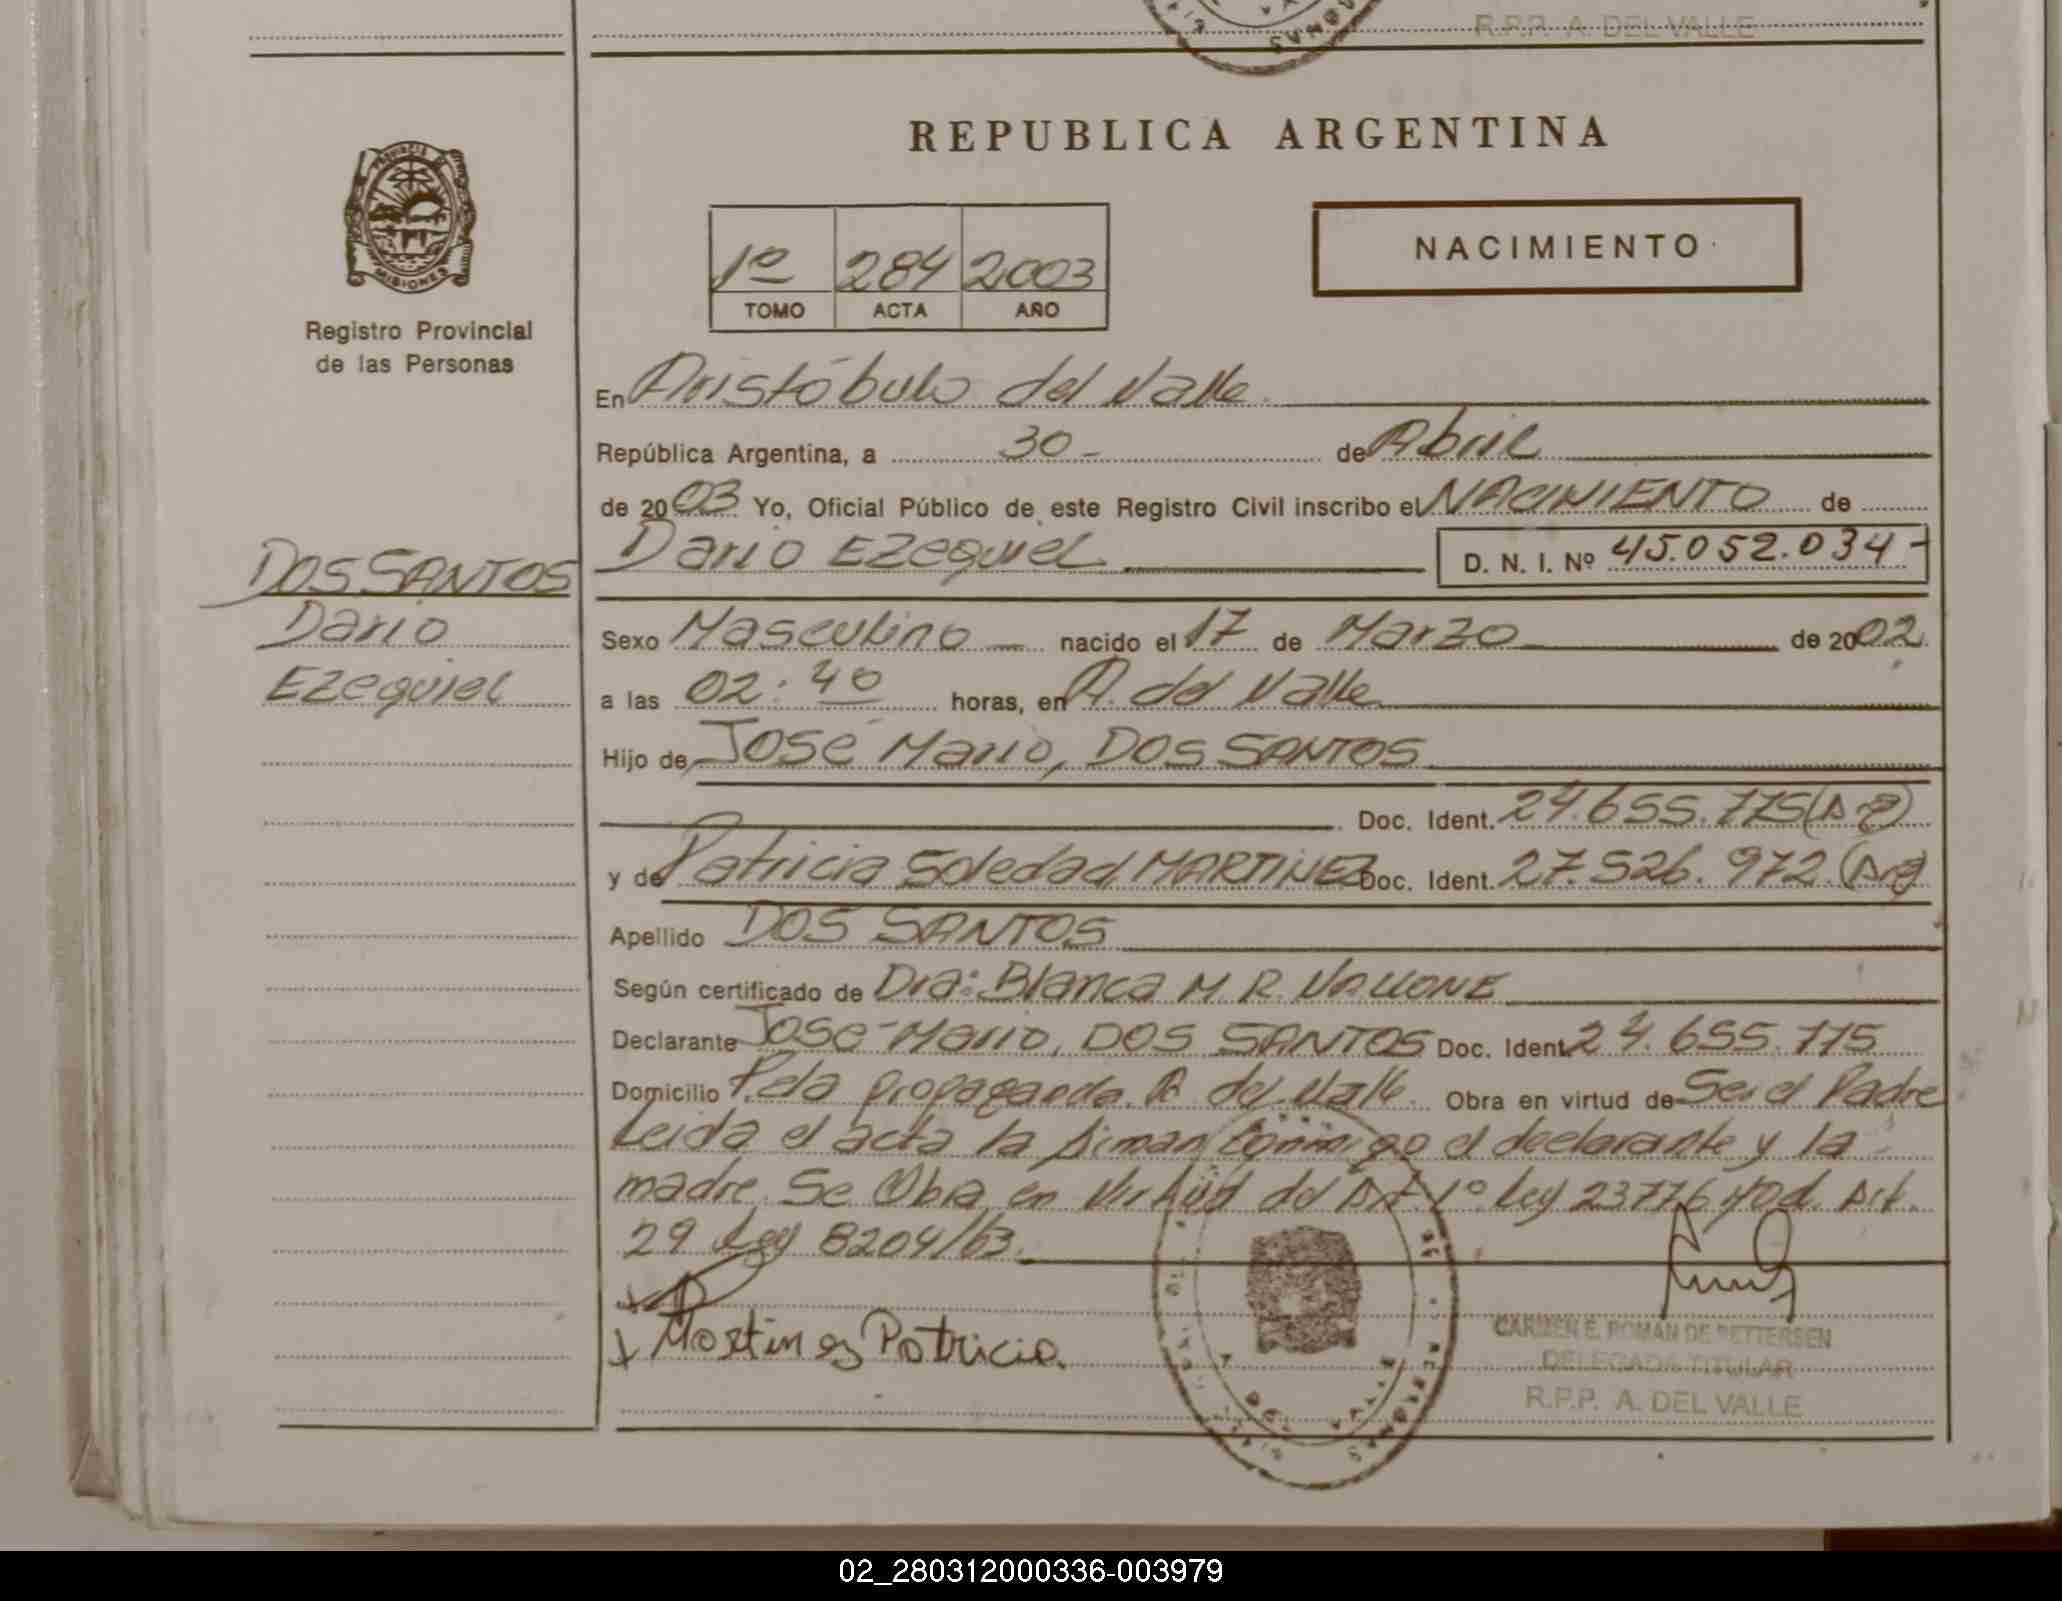 R.P.P. A. DEL VALLE
REPUBLICA ARGENTINA
PROVINCIA DE
MISIONES
Registro Provincial
de las Personas
1º 284 2003
TOMO ACTA AÑO
NACIMIENTO
En Aristóbulo del Valle
República Argentina, a 30 - de Abril
de 2003 Yo, Oficial Público de este Registro Civil inscribo el NACIMIENTO de
Dario EZequiel D. N. I. Nº 45.052.034-
DOS SANTOS
Dario
EZequiel
Sexo Masculino nacido el 17 de Marzo de 2002.
a las 02:40 horas, en A. del Valle
Hijo de José Mario, DOS SANTOS
Doc. Ident. 24.655.775 (Arg)
y de Patricia Soledad MARTINEZ Doc. Ident. 27.526.972. (Arg)
Apellido DOS SANTOS
Según certificado de Dra: Blanca M R. VALLONE
Declarante José Mario, DOS SANTOS Doc. Ident. 24.655.775
Domicilio Pcla propaganda. A. del Valle. Obra en virtud de Ser el Padre
Leida el acta la firman conmigo el declarante y la
madre. Se Obra en Virtud del Art. 1º Ley 23776 Art.
29 Ley 8204/63.
Martinez Patricia.
CARMEN E. ROMAN DE PETTERSEN
DELEGADA TITULAR
R.P.P. A. DEL VALLE
02_280312000336-003979